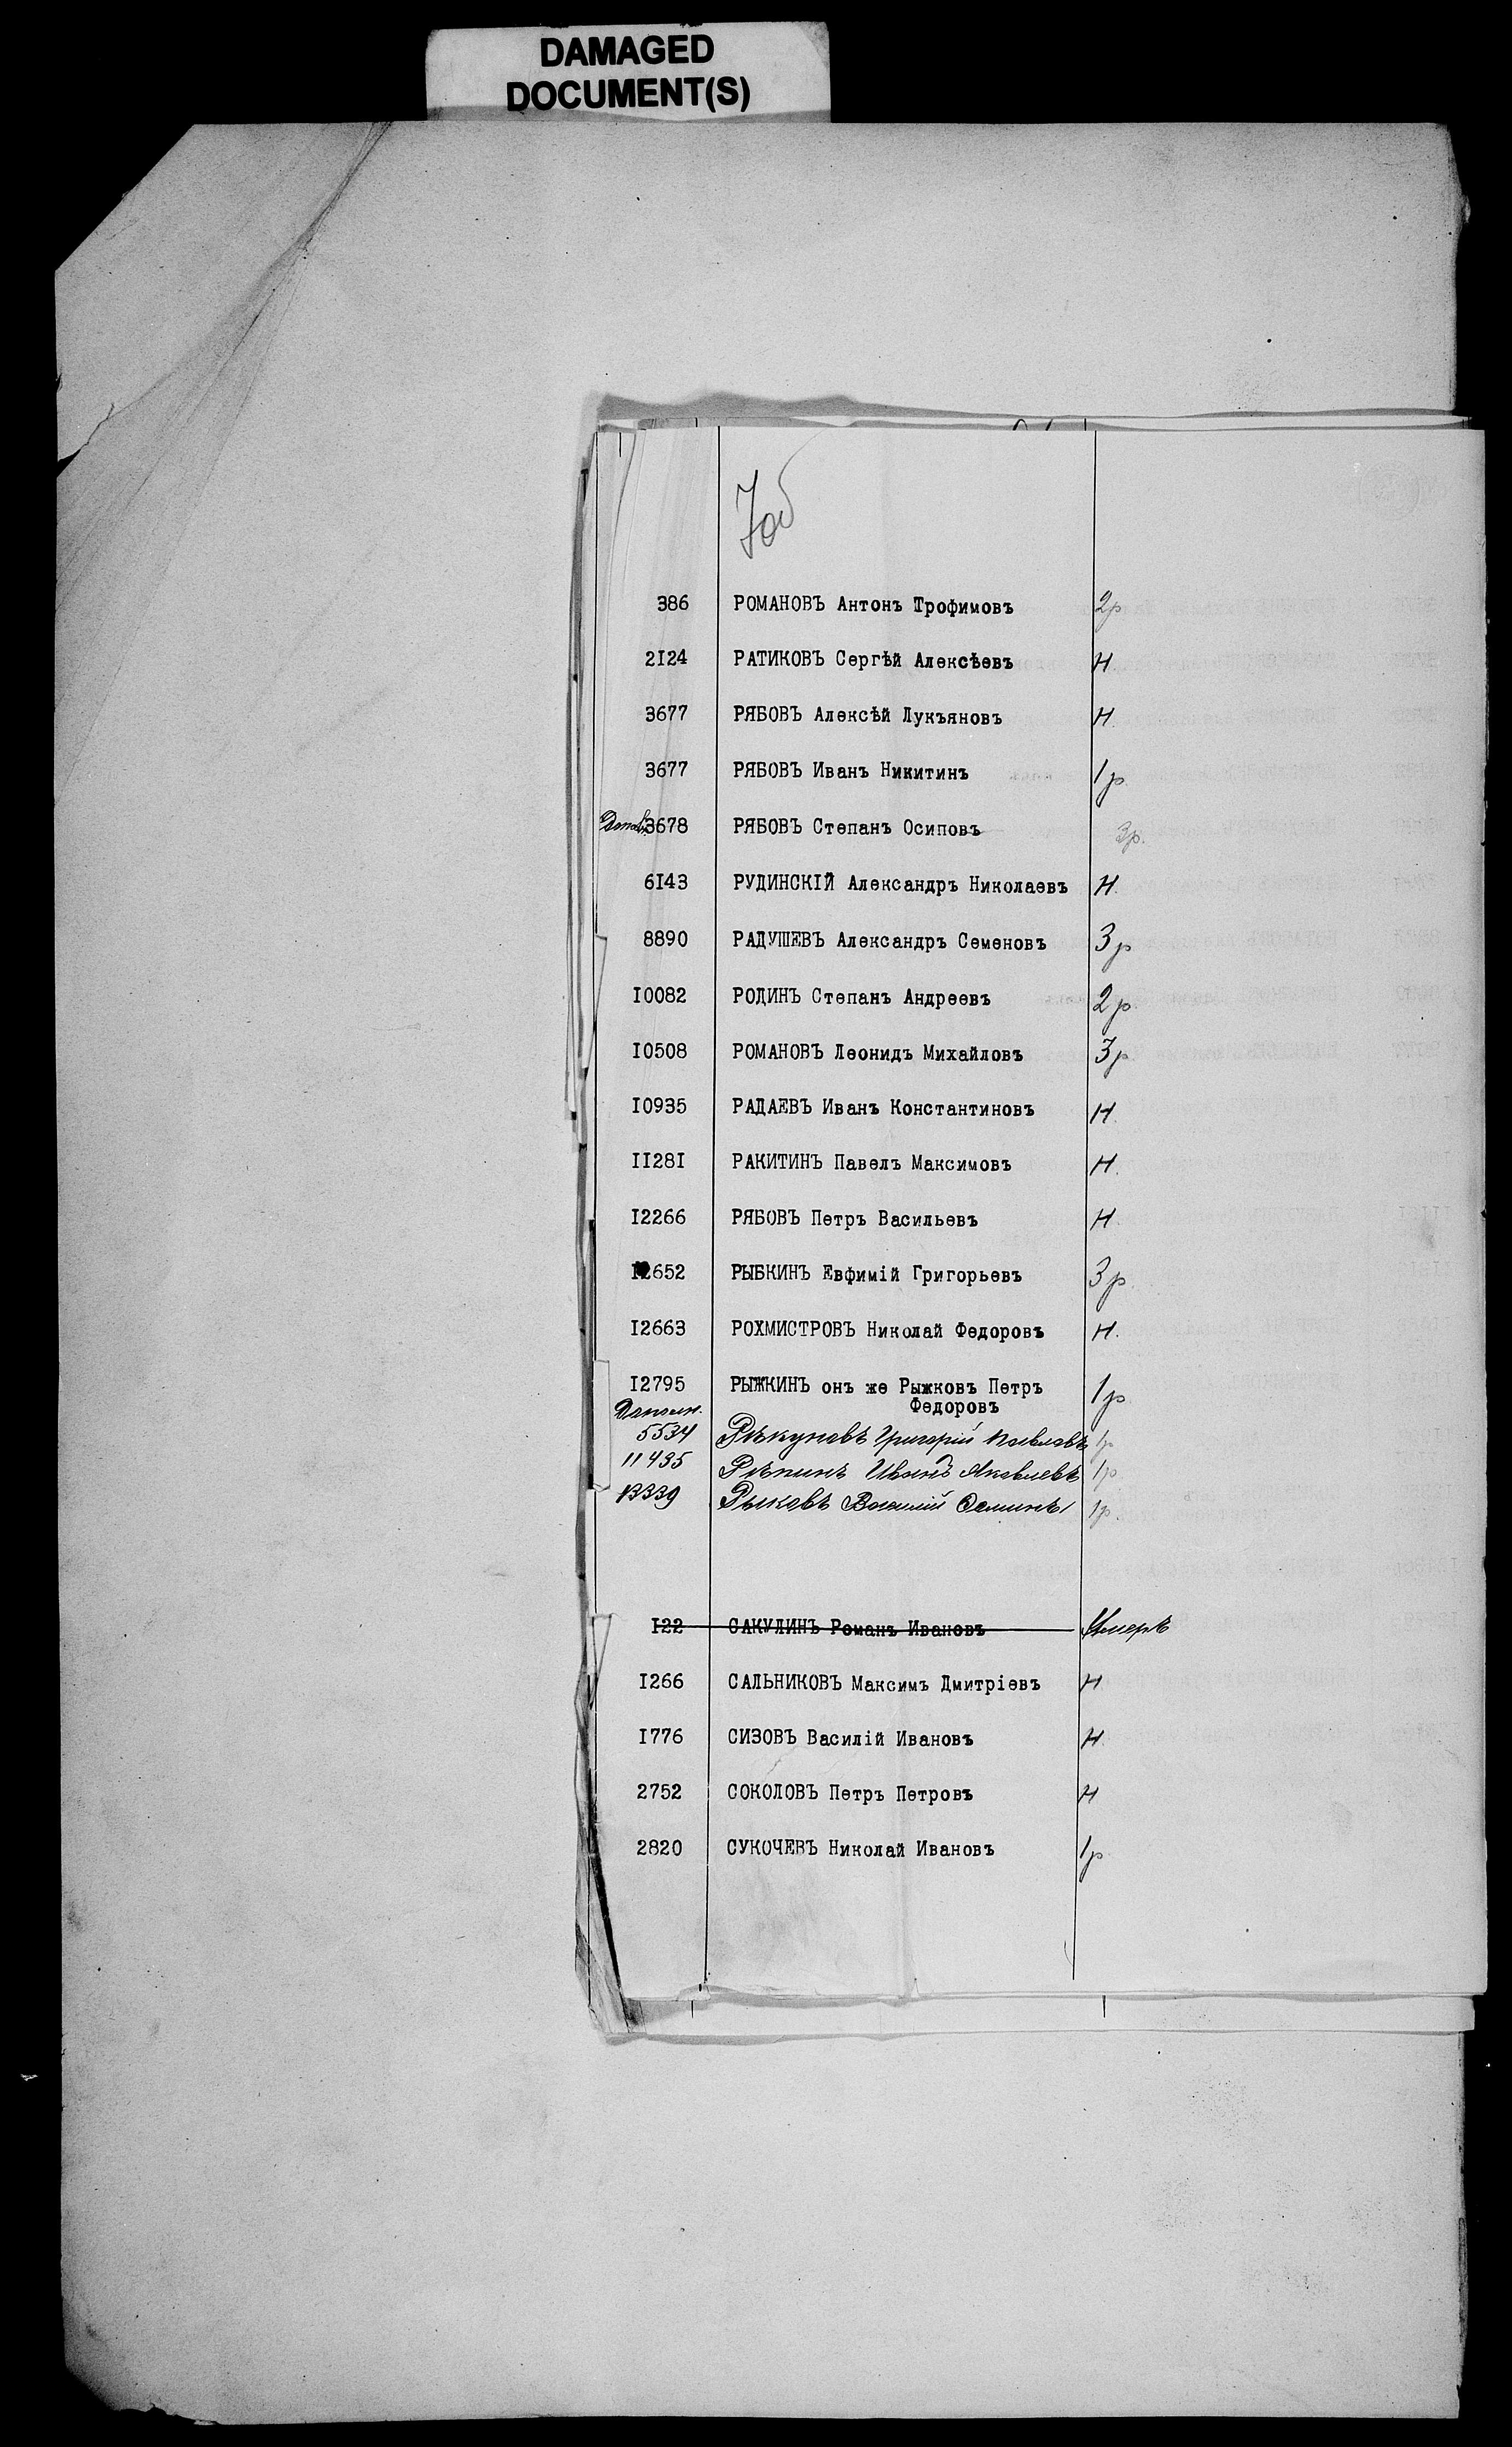 DAMAGED
DOCUMENT(S)
70б
386 РОМАНОВЪ Антонъ Трофимовъ 2р
2124 РАТИКОВЪ Сергѣй Алексѣевъ Н
3677 РЯБОВЪ Алексѣй Лукъяновъ Н
3677 РЯБОВЪ Иванъ Никитинъ 1р.
3678 РЯБОВЪ Степанъ Осиповъ 3р.
6143 РУДИНСКІЙ Александръ Николаевъ Н.
8890 РАДУШЕВЪ Александръ Семеновъ 3р
10082 РОДИНЪ Степанъ Андреевъ 2р.
10508 РОМАНОВЪ Леонидъ Михайловъ 3р
10935 РАДАЕВЪ Иванъ Константиновъ Н.
11281 РАКИТИНЪ Павелъ Максимовъ Н.
12266 РЯБОВЪ Петръ Васильевъ Н
12652 РЫБКИНЪ Евфимій Григорьевъ 3р.
12663 РОХМИСТРОВЪ Николай Федоровъ Н.
12795 РЫЖКИНЪ онъ же Рыжковъ Петръ 1р
Федоровъ
Дополн.
5534 Рѣкуновъ Григорій Павловъ 1р
11435 Рѣпинъ Иванъ Яковлевъ 1р
13339 Рыковъ Василій 1р.
122 САКУЛИНЪ Романъ Ивановъ Умеръ
1266 САЛЬНИКОВЪ Максимъ Дмитріевъ Н
1776 СИЗОВЪ Василій Ивановъ Н
2752 СОКОЛОВЪ Петръ Петровъ Н
2820 СУКОЧЕВЪ Николай Ивановъ 1р